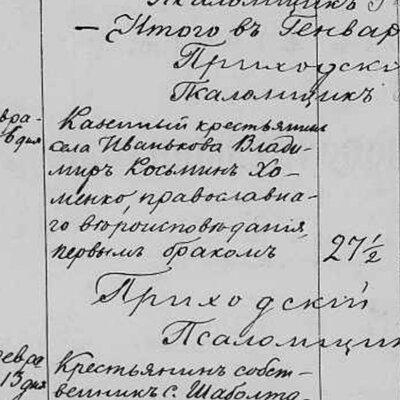 Псаломщикъ
— Итого въ Генвар
Приходскі
Псаломщикъ
евра-
6 дня
Казенный крестьянинъ
села Иванькова Влади-
миръ Косьминъ Хо-
менко, православна-
го вѣроисповѣданія,
первымъ бракомъ
27 1/2
Приходскій
Псаломщик
Февра
13 дня
Крестьянинъ собст-
венникъ с. Шаболта-